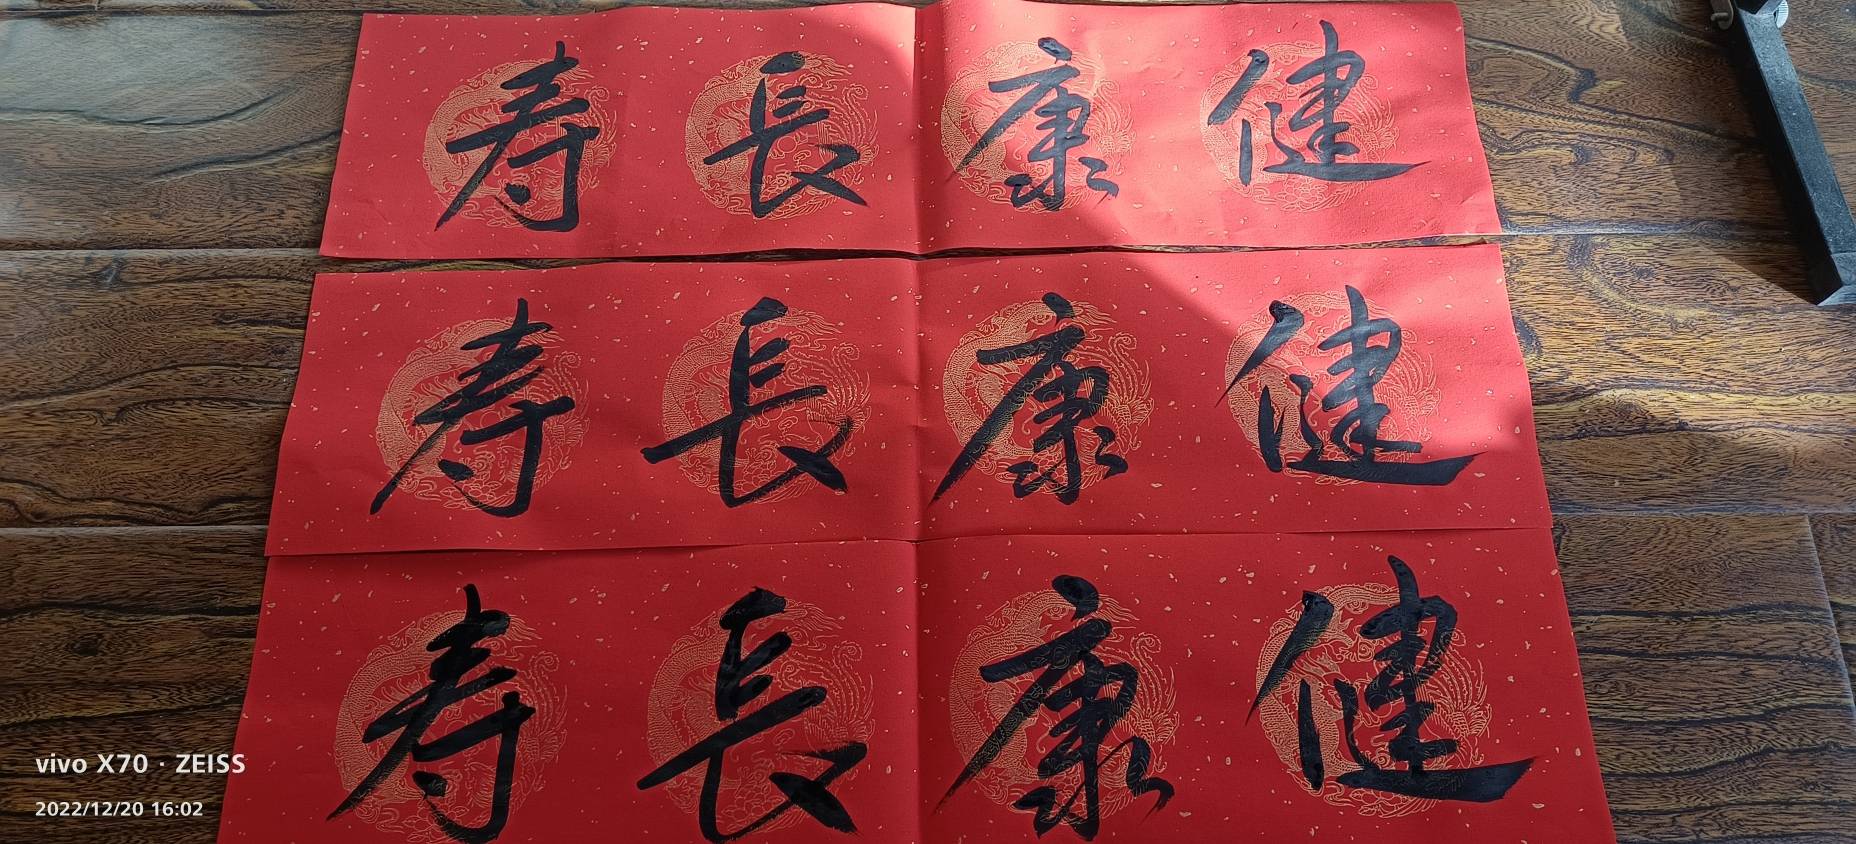 健康長寿
健康長寿
健康長寿
vivo X70 · ZEISS
2022/12/20 16:02